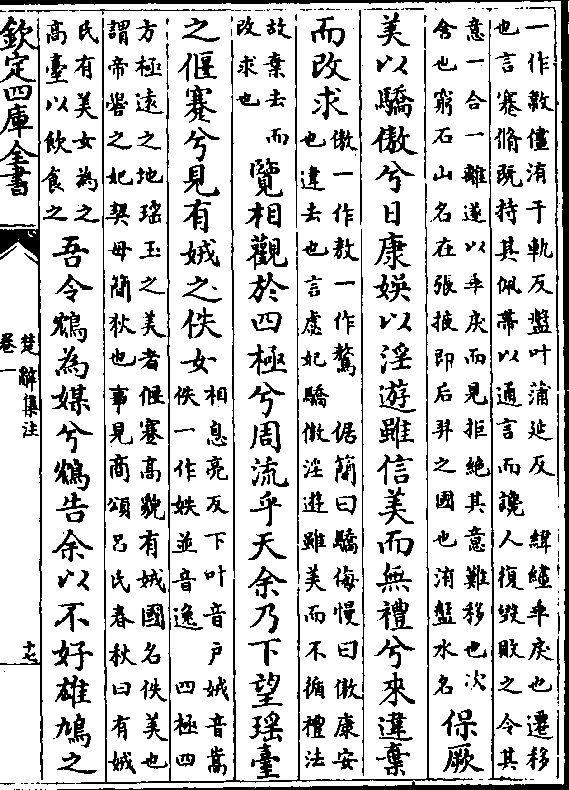 一作敿儘洧于軌反盤叶蒲延反　緯繣乖戾也遷移
也言蹇脩既持其佩帶以通言而讒人復毁敗之令其
意一合一離遂以乖戾而見拒絶其意難移也次
舍也窮石山名在張掖即后羿之國也洧盤水名
保厥
美以驕傲兮日康娱以淫遊雖信美而無禮兮來違棄
而改求
傲一作敖一作驁　倨簡曰驕侮慢曰傲康安
也違去也言虙妃驕傲淫遊雖美而不循禮法
故棄去而
改求也
覽相觀於四極兮周流乎天余乃下望瑶臺
之偃蹇兮見有娀之佚女
相息亮反下叶音户娀音嵩
佚一作妷並音逸　四極四
方極遠之地瑶玉之美者偃蹇高貌有娀國名佚美也
謂帝嚳之妃契母簡狄也事見商頌吕氏春秋曰有娀
氏有美女為之
高臺以飲食之
吾令鴆為媒兮鴆告余以不好雄鳩之
欽定四庫全書
楚辭集注
卷一
十七